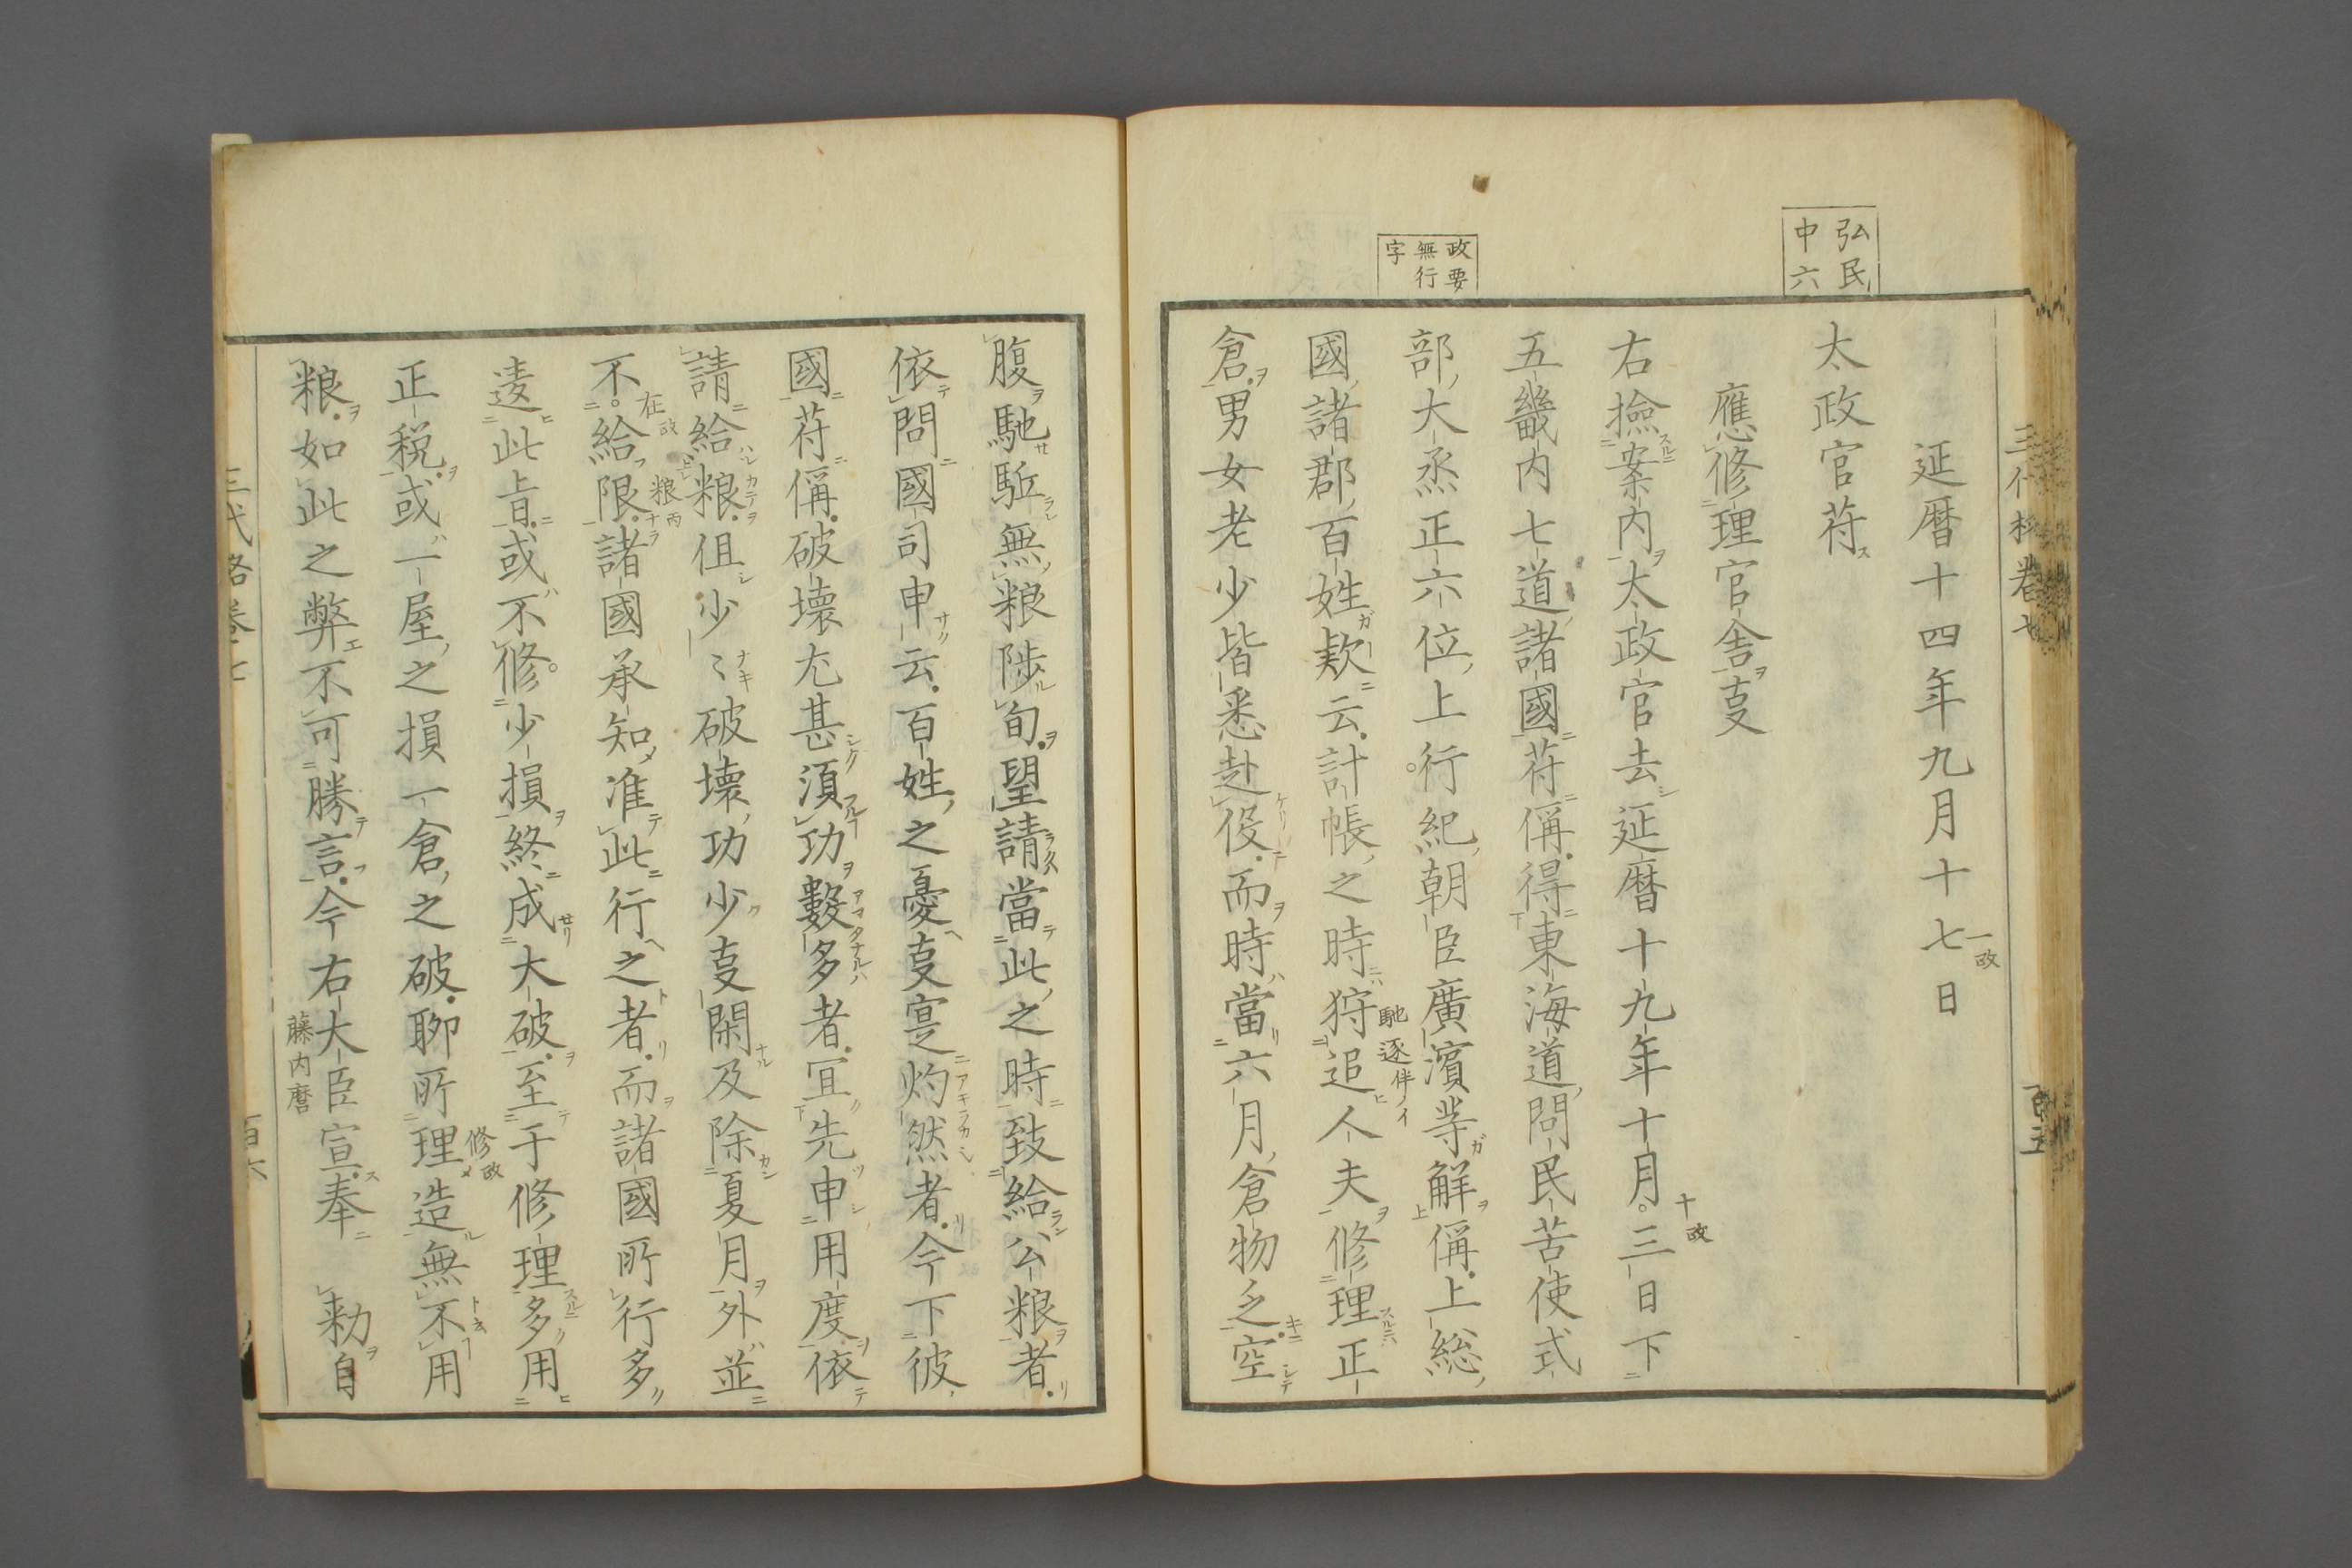 弘民
中六
延暦十四年九月十七日
一政
太政官苻
應修理官舎事
右撿案内太政官去延暦十九年十月三日下
十政
五畿内七道諸國苻偁得東海道問民苦使式
部大丞正六位上行紀朝臣廣濱等解偁上総
政要
無行
字
國諸郡百姓欵云計帳之時狩追人夫修理正
馳逐伴ノイ
倉男女老少皆悉赴役而時當六月倉物乏空
腹馳駈無粮渉旬望請當此之時致給公粮者
依問國司申云百姓之憂事寔灼然者今下彼
國苻偁破壊尤甚須功數多者冝先申用度依
請給粮但少〻破壊功少事閑及除夏月外並
不給限諸國承知准此行之者而諸國所行多
在政
粮丙
逶此旨或不修少損終成大破至于修理多用
正税或一屋之損一倉之破聊所理造無不用
修政
粮如此之弊不可勝言今右大臣宣奉　勑自
藤内麿